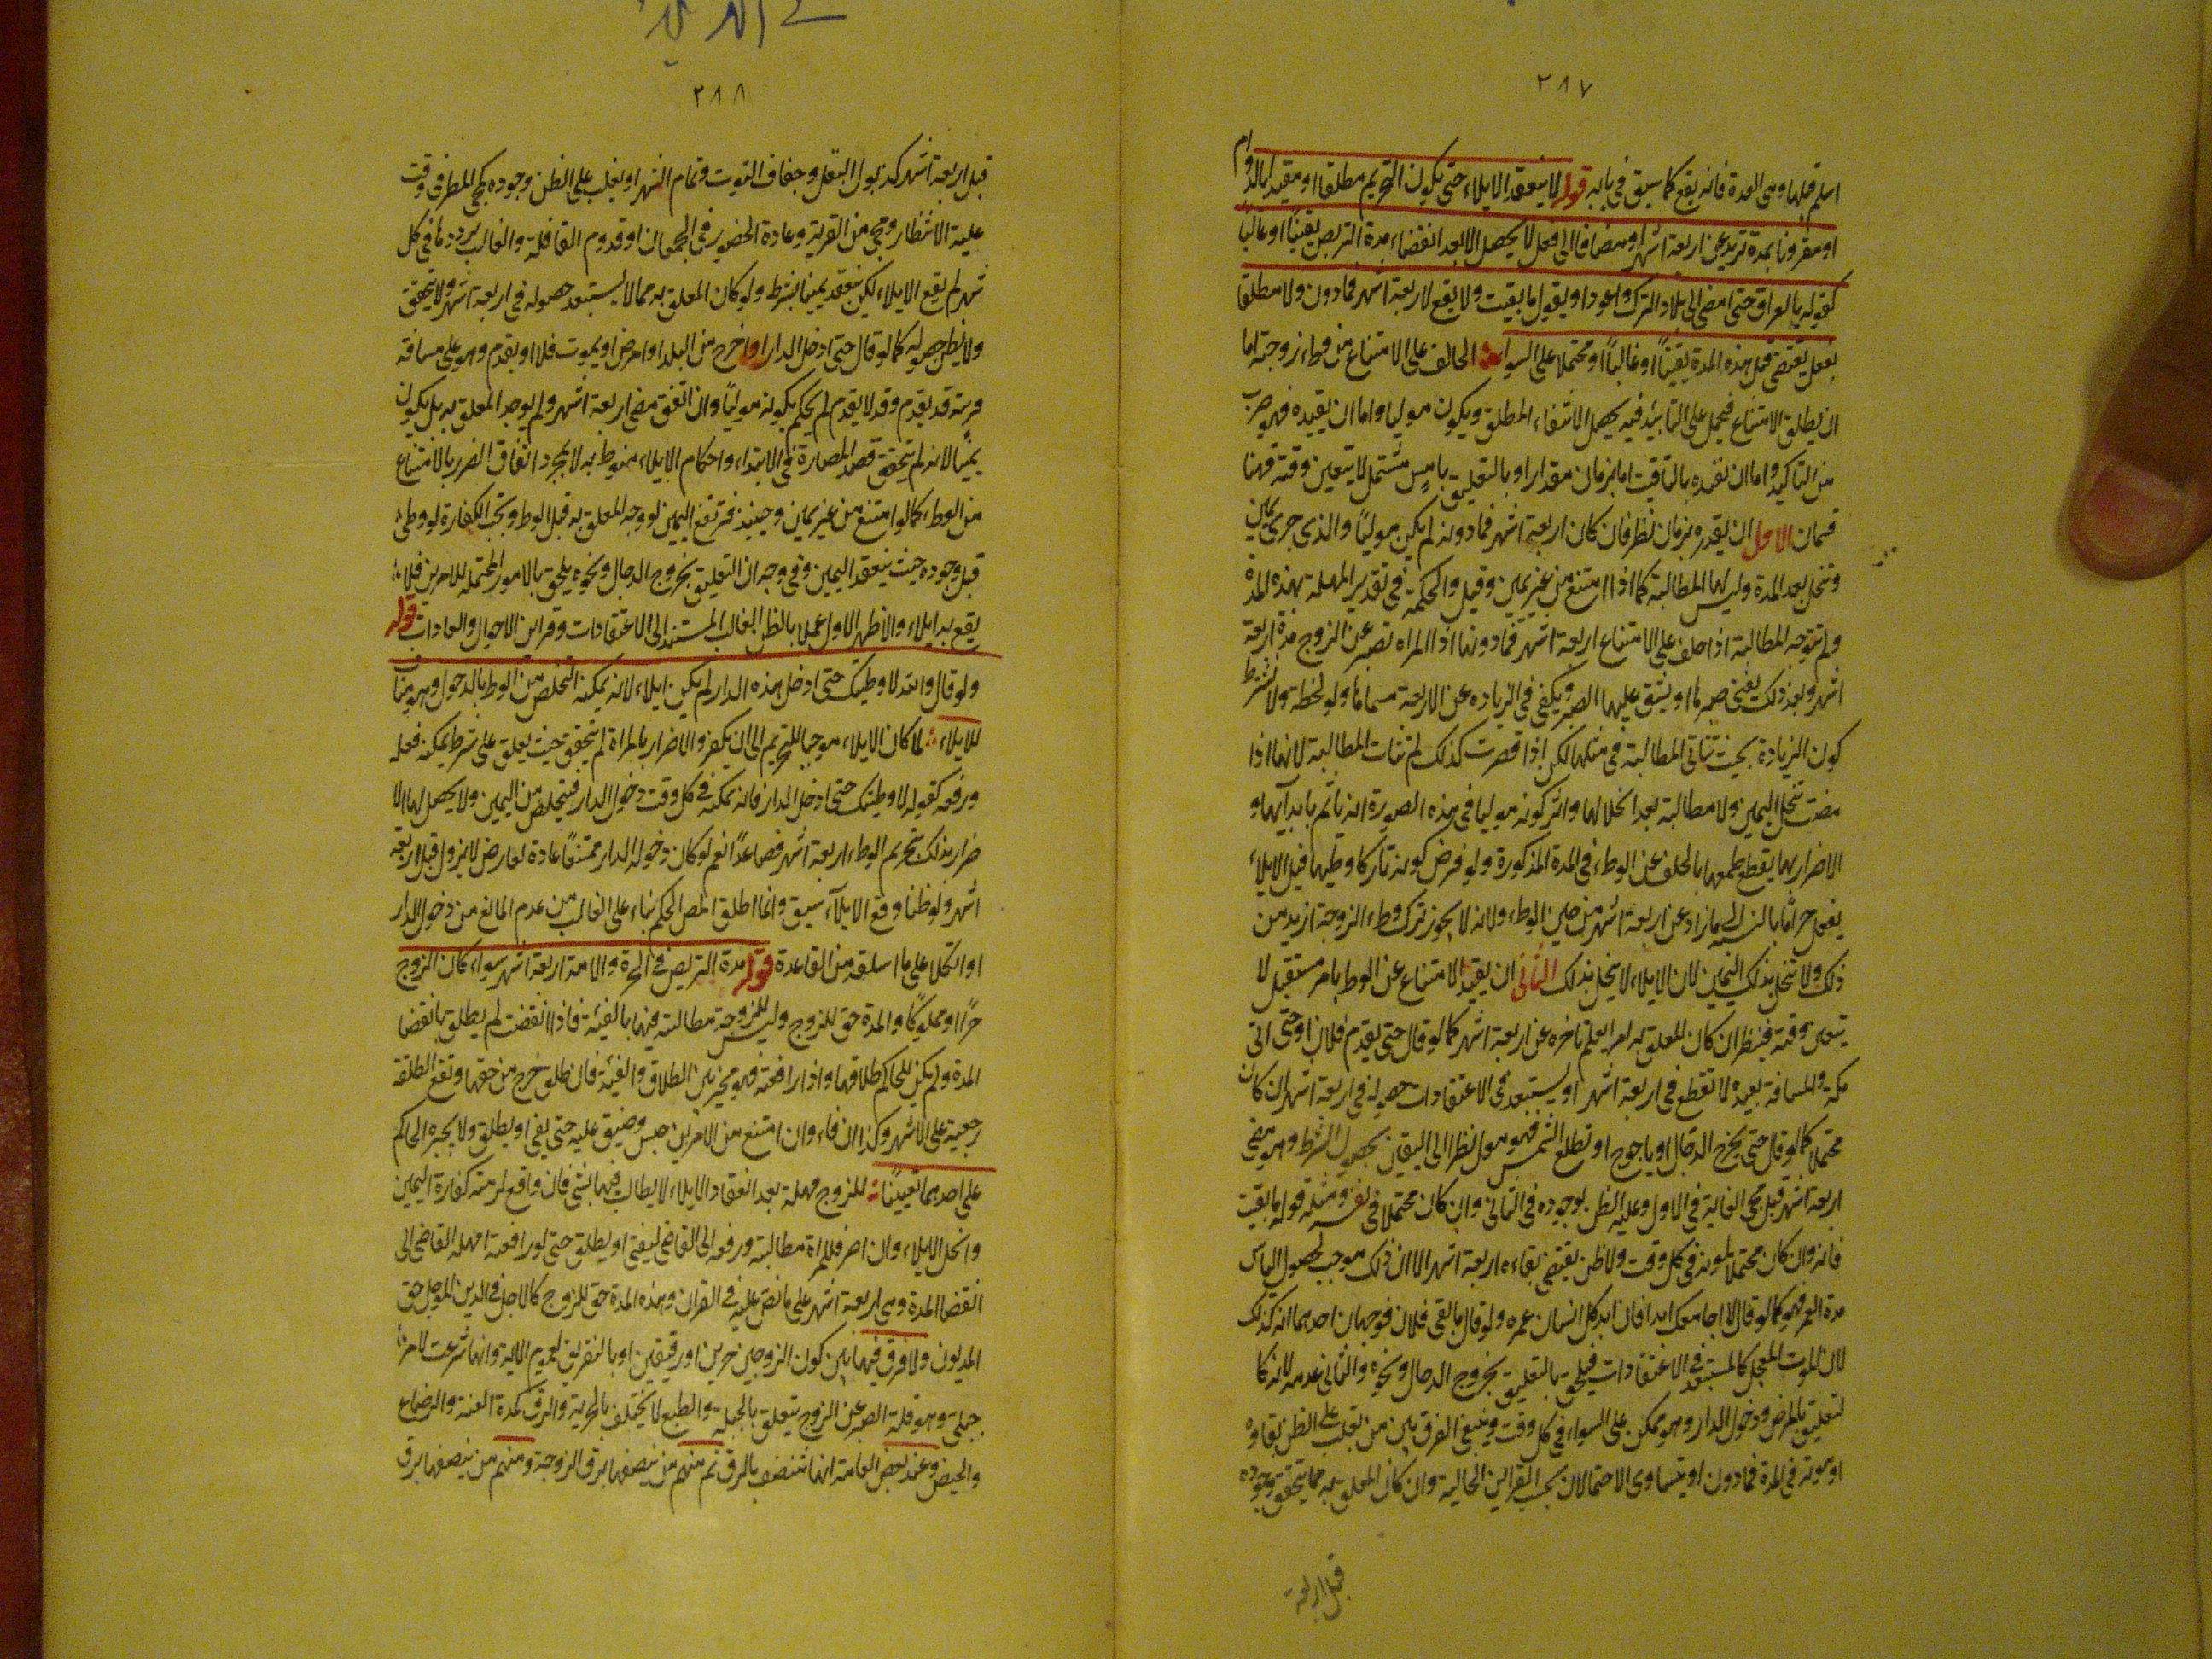 ٢٨٧
اسلم قبلها وهى العدة فانه يقع كما سبق فى بابه قوله لا ينعقد الايلاء حتى يكون التحريم مطلقا او مقيدا بالدوام
او مقرونا بمدة تزيد عن اربعة اشهر او مضافا الى فعل لا يحصل الا بعد انقضاء مدة التربص يقينا او غالبا
كقوله بالعراق حتى امضى الى بلاد الترك واعود او يقول ما بقيت ولا يقع لاربعة اشهر فما دون ولا معلقا
بفعل ينقضى قبل هذه المدة يقينا او غالبا او محتملا على السواء الحالف على الامتناع من وطء زوجته اما
ان يطلق الامتناع فيحمل على التابيد فيه يحصل الانتفاء المطلق ويكون موليا واما ان يقيده فهو ضرب
من التاكيد واما ان يقيده بالتاقيت اما بزمان مقدار او بالتعليق بامر مستقبل لا يتعين وقته فهنا
قسمان الاول ان يقدره بزمان نظر فان كان اربعة اشهر فما دونه لم يكن موليا والذى جرى يمين
وتنحل بعد المدة وليس لها المطالبة كما اذا امتنع من غير يمين وقيل والحكمة فى تقدير المهلة بهذه المدة
ولم يتوجه المطالبة اذا حلف على الامتناع اربعة اشهر فما دونها اذ المراه تصبر عن الزوج مدة اربعة
اشهر وبعد ذلك يفنى صبرها او يشق عليها الصبر ويكفى فى الزياده عن الاربعة مسماها ولو لحظة ولا يشترط
كون الزيادة بحيث تتاتى المطالبة فى مثلها لكن اذا قصرت كذلك لم تتات المطالبة لانها اذا
مضت تنحل اليمين ولا مطالبة بعد انحلالها واثر كونه موليا فى هذه الصورة انه ياثم بايدائها و
الاضرار بها بقطع طمعها بالحلف عن الوطء فى المدة المذكورة ولو فرض كونه تاركا وطيها قبل الايلاء
يفعل حراما بالنسبة الى ما زاد عن اربعة اشهر من حين الوطء ولانه لا يجوز ترك وطء الزوجة ازيد من
ذلك ولا تنحل بذلك اليمين لان الايلاء لا ينحل بذلك الثانى ان يقيد الامتناع عن الوطء بامر مستقبل لا
يتعين وقته فينظر ان كان المعلق به امرا يعلم تاخره عن اربعة اشهر كما لو قال حتى يقدم فلان او حتى اتى
مكة والمسافة بعيدة لا تقطع فى اربعة اشهر او يستبعد فى الاعتقادات حصوله فى اربعة اشهر ان كان
محتملا كما لو قال حتى يخرج الدجال او ياجوج او تطلع الشمس فهو مول نظرا الى اليقين بحصول الشرط وهو مضى
اربعة اشهر قبل مجئ الغاية فى الاول وغلبة الظن بوجوده فى الثانى وان كان محتملا فى نفسه ومثله قوله ما بقيت
فانه وان كان محتملا لموته فى كل وقت ولا ظن يقتضى بقاءه اربعة اشهر الا ان ذلك موجب لحصول الياس
مدة العمر فهو كما لو قال لا اجامعك ابدا فان ابد كل انسان عمره ولو قال ما بقى فلان فوجهان احدهما انه كذلك
لان الموت المعجل كالمستبعد فى الاعتقادات فيلحق بالتعليق بخروج الدجال ونحوه والثانى عدمه لانه كا
لتعليق بالمرض ودخول الدار وهو ممكن على السواء فى كل وقت وينبغى الفرق بين من يغلب على الظن بقاوه
او موته فى المدة فما دون او يتساوى الاحتمالان بحسب القراين الحالية وان كان المعلق به مما يتحقق وجوده
قبل اربعة
٢٨٨
قبل اربعة اشهر كذبول البقل وجفاف التوت وتمام الشهر او يغلب على الظن وجوده كمجئ المطر فى وقت
غلبة الانتظار ومجئ من القرية وعادة الحضور فى الجمعات او قدوم القافلة والغالب ترددها فى كل
شهر لم يقع الايلاء لكن ينعقد يمينا بشرط ولو كان المعلق به مما لا يستبعد حصوله فى اربعة اشهر ولا يتحقق
ولا يظن حصوله كما لو قال حتى ادخل الدار او اخرج من البلد او امرض او يموت فلان او يقدم وهو على مسافة
قريبة قد يقدم وقد لا يقدم لم يحكم بكونه موليا وان اتفق مضى اربعة اشهر ولم يوجد المعلق به بل يكون
يمينا لانه لم يتحقق قصد المضارة فى الابتداء واحكام الايلاء منوط به لا بمجرد اتفاق الضرر بالامتناع
من الوطء كما لو امتنع من غير يمين وحينئذ فترتفع اليمين لو وجد المعلق به قبل الوطء وتجب الكفارة لو وطئ
قبل وجوده حيث ينعقد اليمين وفى وجه ان التعليق بخروج الدجال ونحوه يلحق بالامور المحتملة للامرين فلا
يقع به ايلاء والاظهر الاول عملا بالظن الغالب المستند الى الاعتقادات وقراين الاحوال والعادات قوله
ولو قال والله لا وطيتك حتى ادخل هذه الدار لم يكن ايلاء لانه يمكنه التخلص من الوطء بالدخول وهو مناف
للايلاء لما كان الايلاء موجبا للتحريم الى ان يكفر والاضرار بالمراة لم يتحقق حيث يعلق على شرط يمكنه فعله
ورفعه كقوله لا وطيتك حتى ادخل الدار فانه يمكنه فى كل وقت دخول الدار فيتخلص من اليمين ولا يحصل لها الا
ضرار بذلك بتحريم الوطء اربعة اشهر فصاعدا نعم لو كان دخوله الدار ممتنعا عادة لعارض لا يزول قبل اربعة
اشهر ولو ظنا وقع الايلاء سبق وانما اطلق المص الحكم بناء على الغالب من عدم المانع من دخول الدار
او اتكلا على ما اسلفه من القاعدة قوله مدة التربص فى الحرة والامة اربعة اشهر سواء كان الزوج
حرا او مملوكا والمدة حق للزوج وليس للزوجة مطالبته فيها بالفيئة فاذا انقضت لم يطلق بانقضا
المدة ولم يكن للحاكم طلاقها واذا رافعته فهو مخير بين الطلاق والفيئة فان طلق خرج من حقها وتقع الطلقة
رجعية على الاشهر وكذا ان فاء وان امتنع من الامرين حبس وضيق عليه حتى يفئ او يطلق ولا يجبره الحاكم
على احدهما تعيينا للزوج مهلة بعد انعقاد الايلاء لا يطالب فيها بشئ فان واقع لزمته كفارة اليمين
وانحل الايلاء وان اصر فللمراة مطالبته ورفعه الى القاضى ليفئ او يطلق حتى لو رافعته امهله القاضى الى
انقضا المدة وهى اربعة اشهر على ما نص عليه فى القران وهذه المدة حق للزوج كالاجل فى الدين المؤجل حق
المديون ولا فرق فيها بين كون الزوجين حرين او رقيقين او بالتفريق لعموم الاية وانها شرعت لامر
جبلى وهو قلة الصبر عن الزوج يتعلق بالجبلة والطبع لا يختلف بالحرية والرق كمدة العنة والرضاع
والحيض وعند بعض العامة انها تتنصف بالرق ثم منهم من ينصفها برق الزوجة ومنهم من ينصفها برق